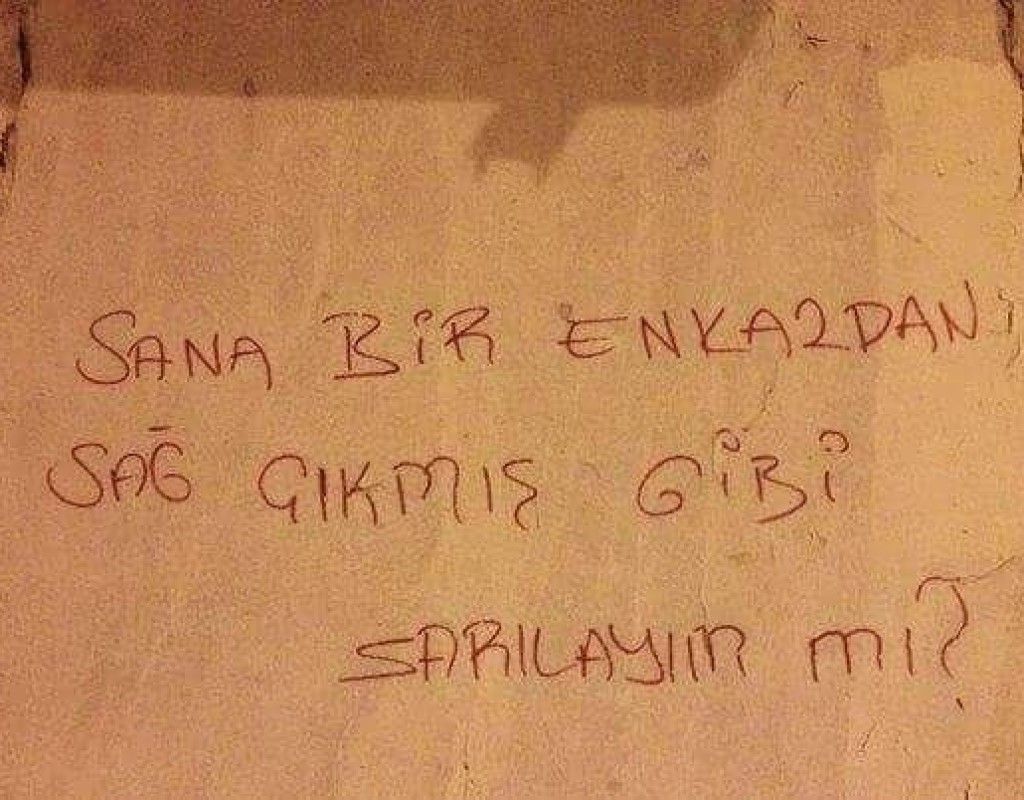 SANA BİR ENKAZDAN
SAĞ ÇIKMIŞ GİBİ
SARILAYIM MI?